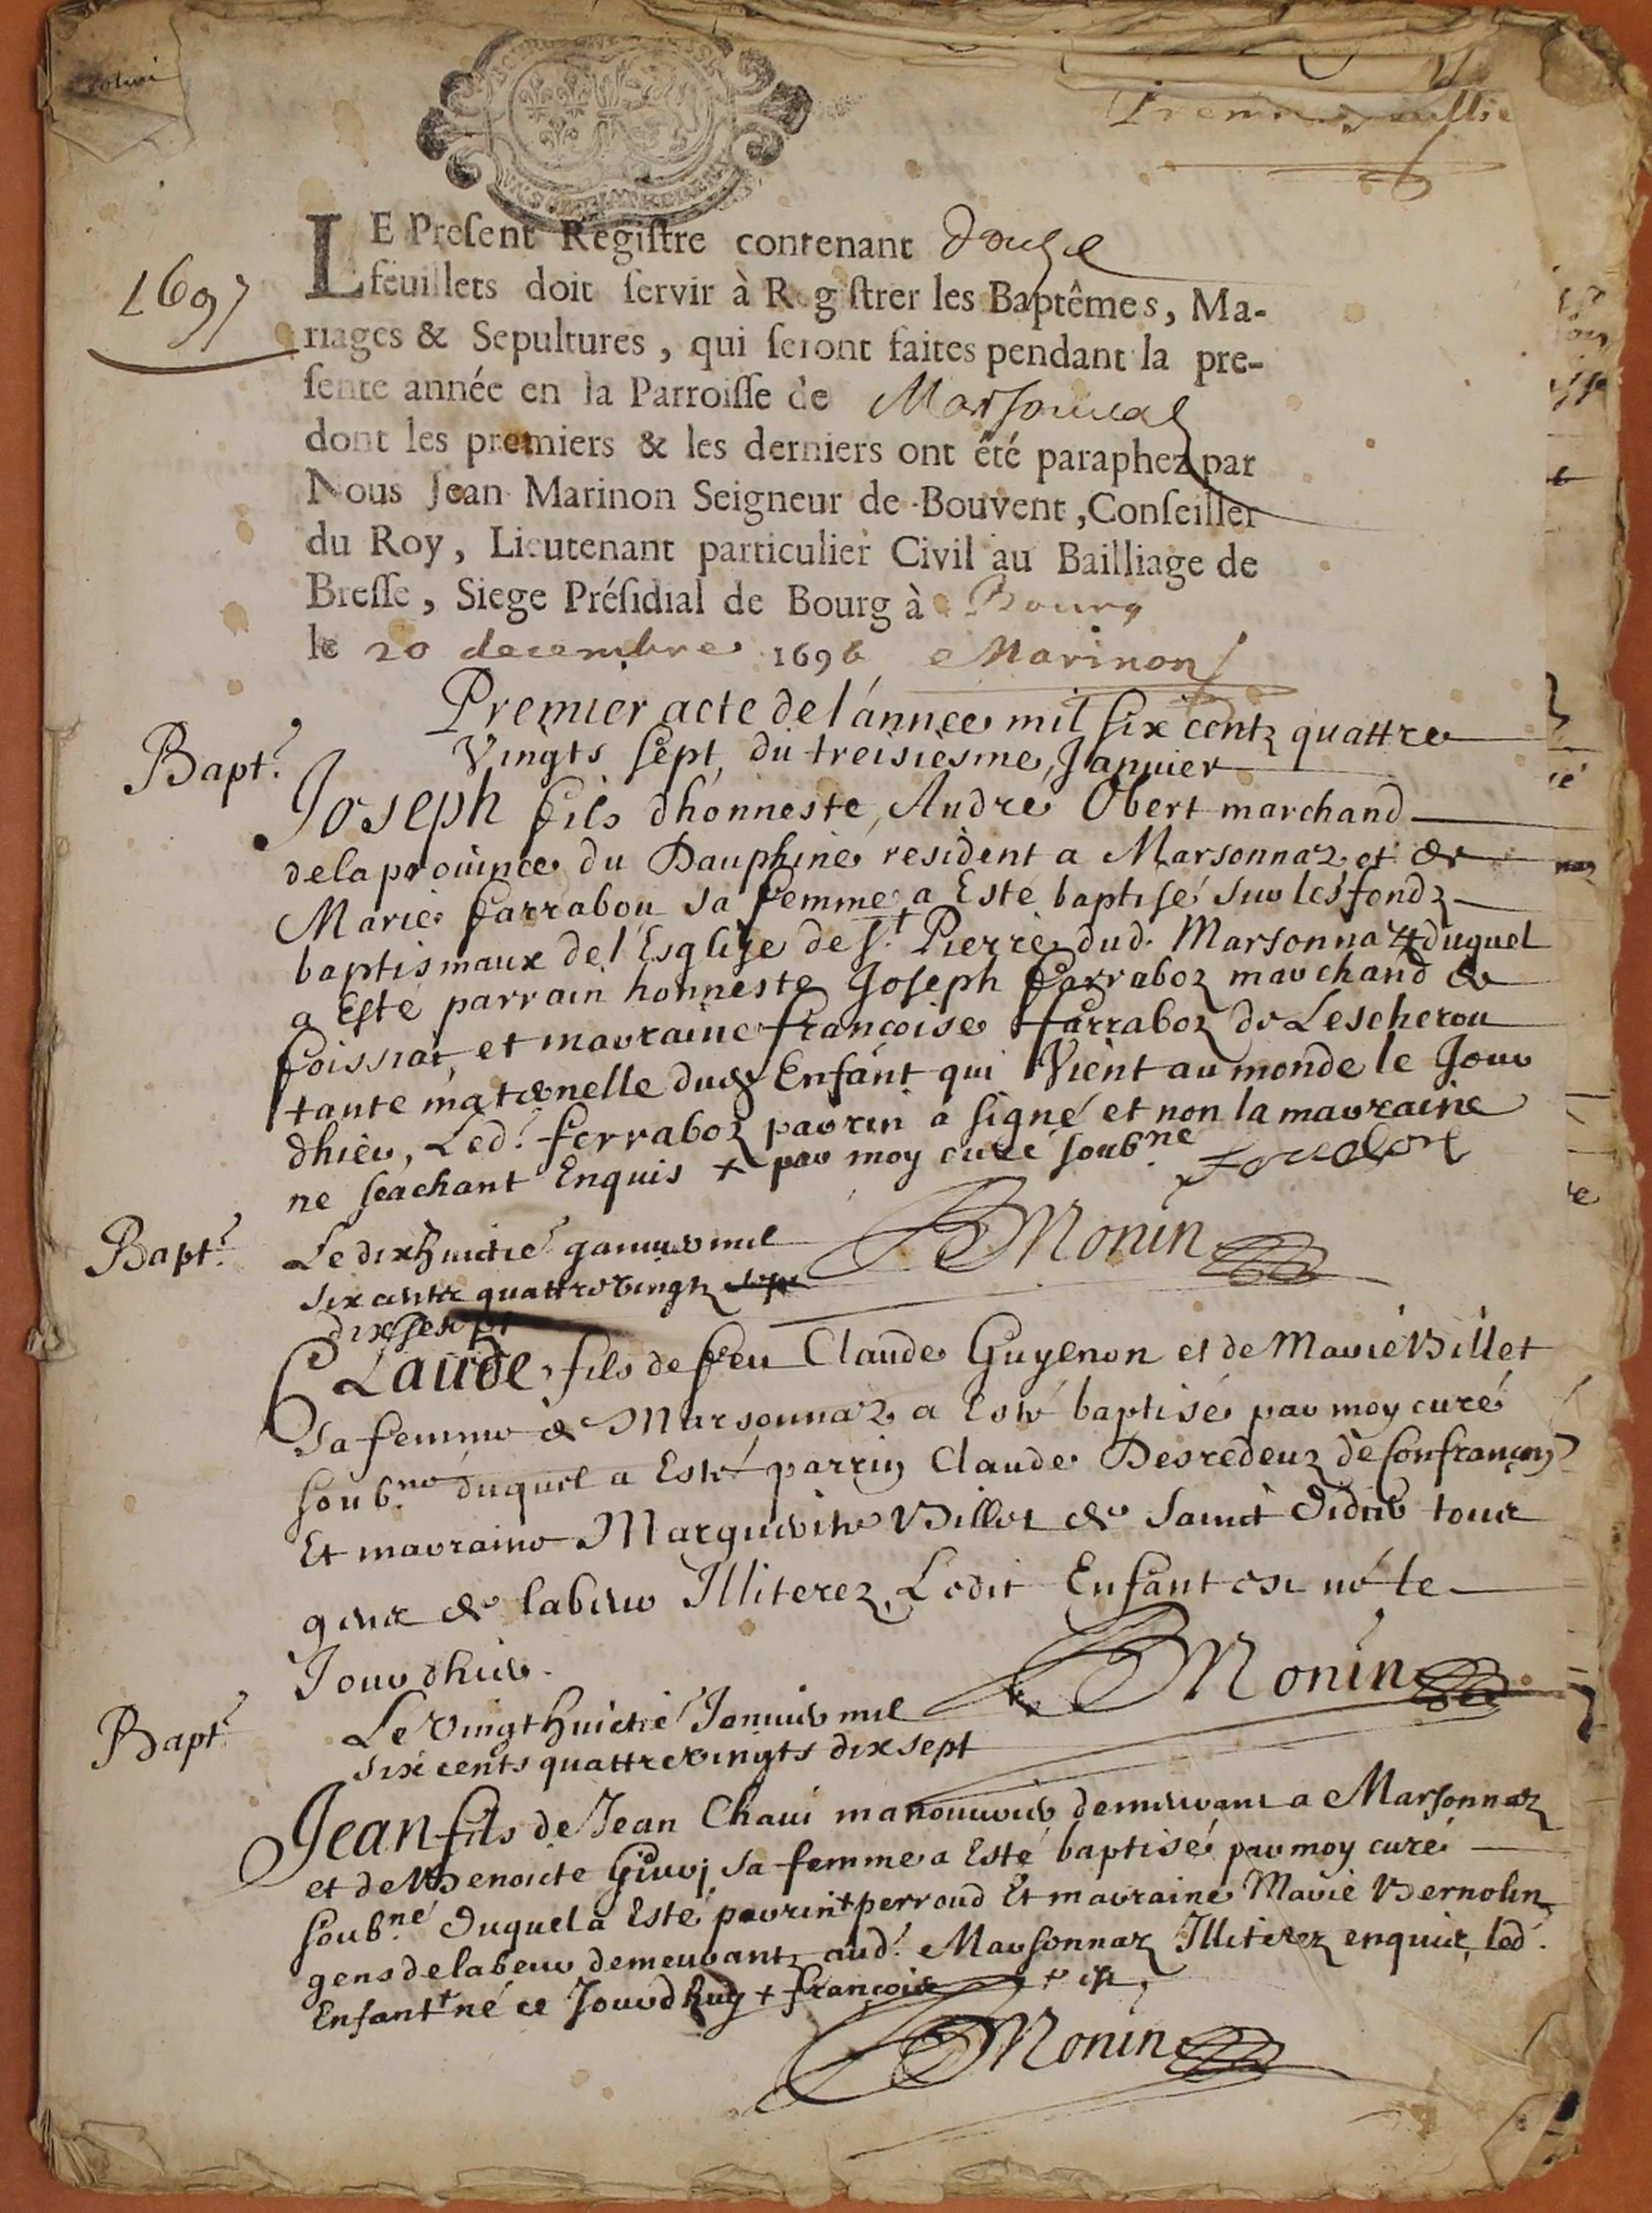 Premier feuillet
LE Preſent Regiſtre contenant douze
feuillets doit ſervir à Regiſtrer les Baptêmes, Ma-
1697
riages & Sepultures, qui ſeront faites pendant la pre-
ſente année en la Parroiſſe de Marsonnaz
dont les premiers & les derniers ont été paraphez par
Nous Jean Marinon Seigneur de Bouvent, Conſeiller
du Roy, Lieutenant particulier Civil au Bailliage de
Breſſe, Siege Préſidial de Bourg à Bourg
le 20 decembre 1696 Marinon
Premier acte de l'année mil six centz quattre
Bapt.
Vingts sept, du treisiesme, Januier
Joseph fils dhonneste, André Obert marchand
de la prouince du Dauphiné resident a Marsonnaz et de
Marie farrabou sa femme a Esté baptisé sur les fondz
baptismaux de l'Esglize de St Pierre dud. Marsonnaz duquel
a Esté parrain honneste Joseph farraboz marchand de
foissiat, et marraine françoise farraboz de Lescherou
tante maternelle dud Enfant qui Vient au monde le Jour
dhier, Led. ferraboz parrin a signé et non la marraine
ne scachant Enquis + par moy curé soubné
Bapt.
BMonin
Le dixhuictié januier mil
six centz quattrevingtz sept
dixsept
Claude, fils de feu Claude Guyenon et de Marie Billet
sa femme de Marsonnaz a Esté baptisé par moy curé
soubné duquel a Esté parrin Claude Desredeuz de Confrançon
Et marraine Marguerite Billet de Sainct Didier tous
gens de labeur Illiterez, Ledit Enfant est né le
Jour dhier.
BMonin
Bapt.
Le vingt huictié Januier mil
six cents quattrevingts dixsept
Jean fils de Jean Chaui manouurier demeurant a Marsonnaz
et de Benoicte sa femme a Esté baptisé par moy curé
soubné duquel a Esté parrin + perroud Et marraine Marie Bernolin
gens de labeur demeurantz aud. Marsonnaz Illiterez enquis, led.
Enfant + né ce Jourdhuy + françois + est
BMonin